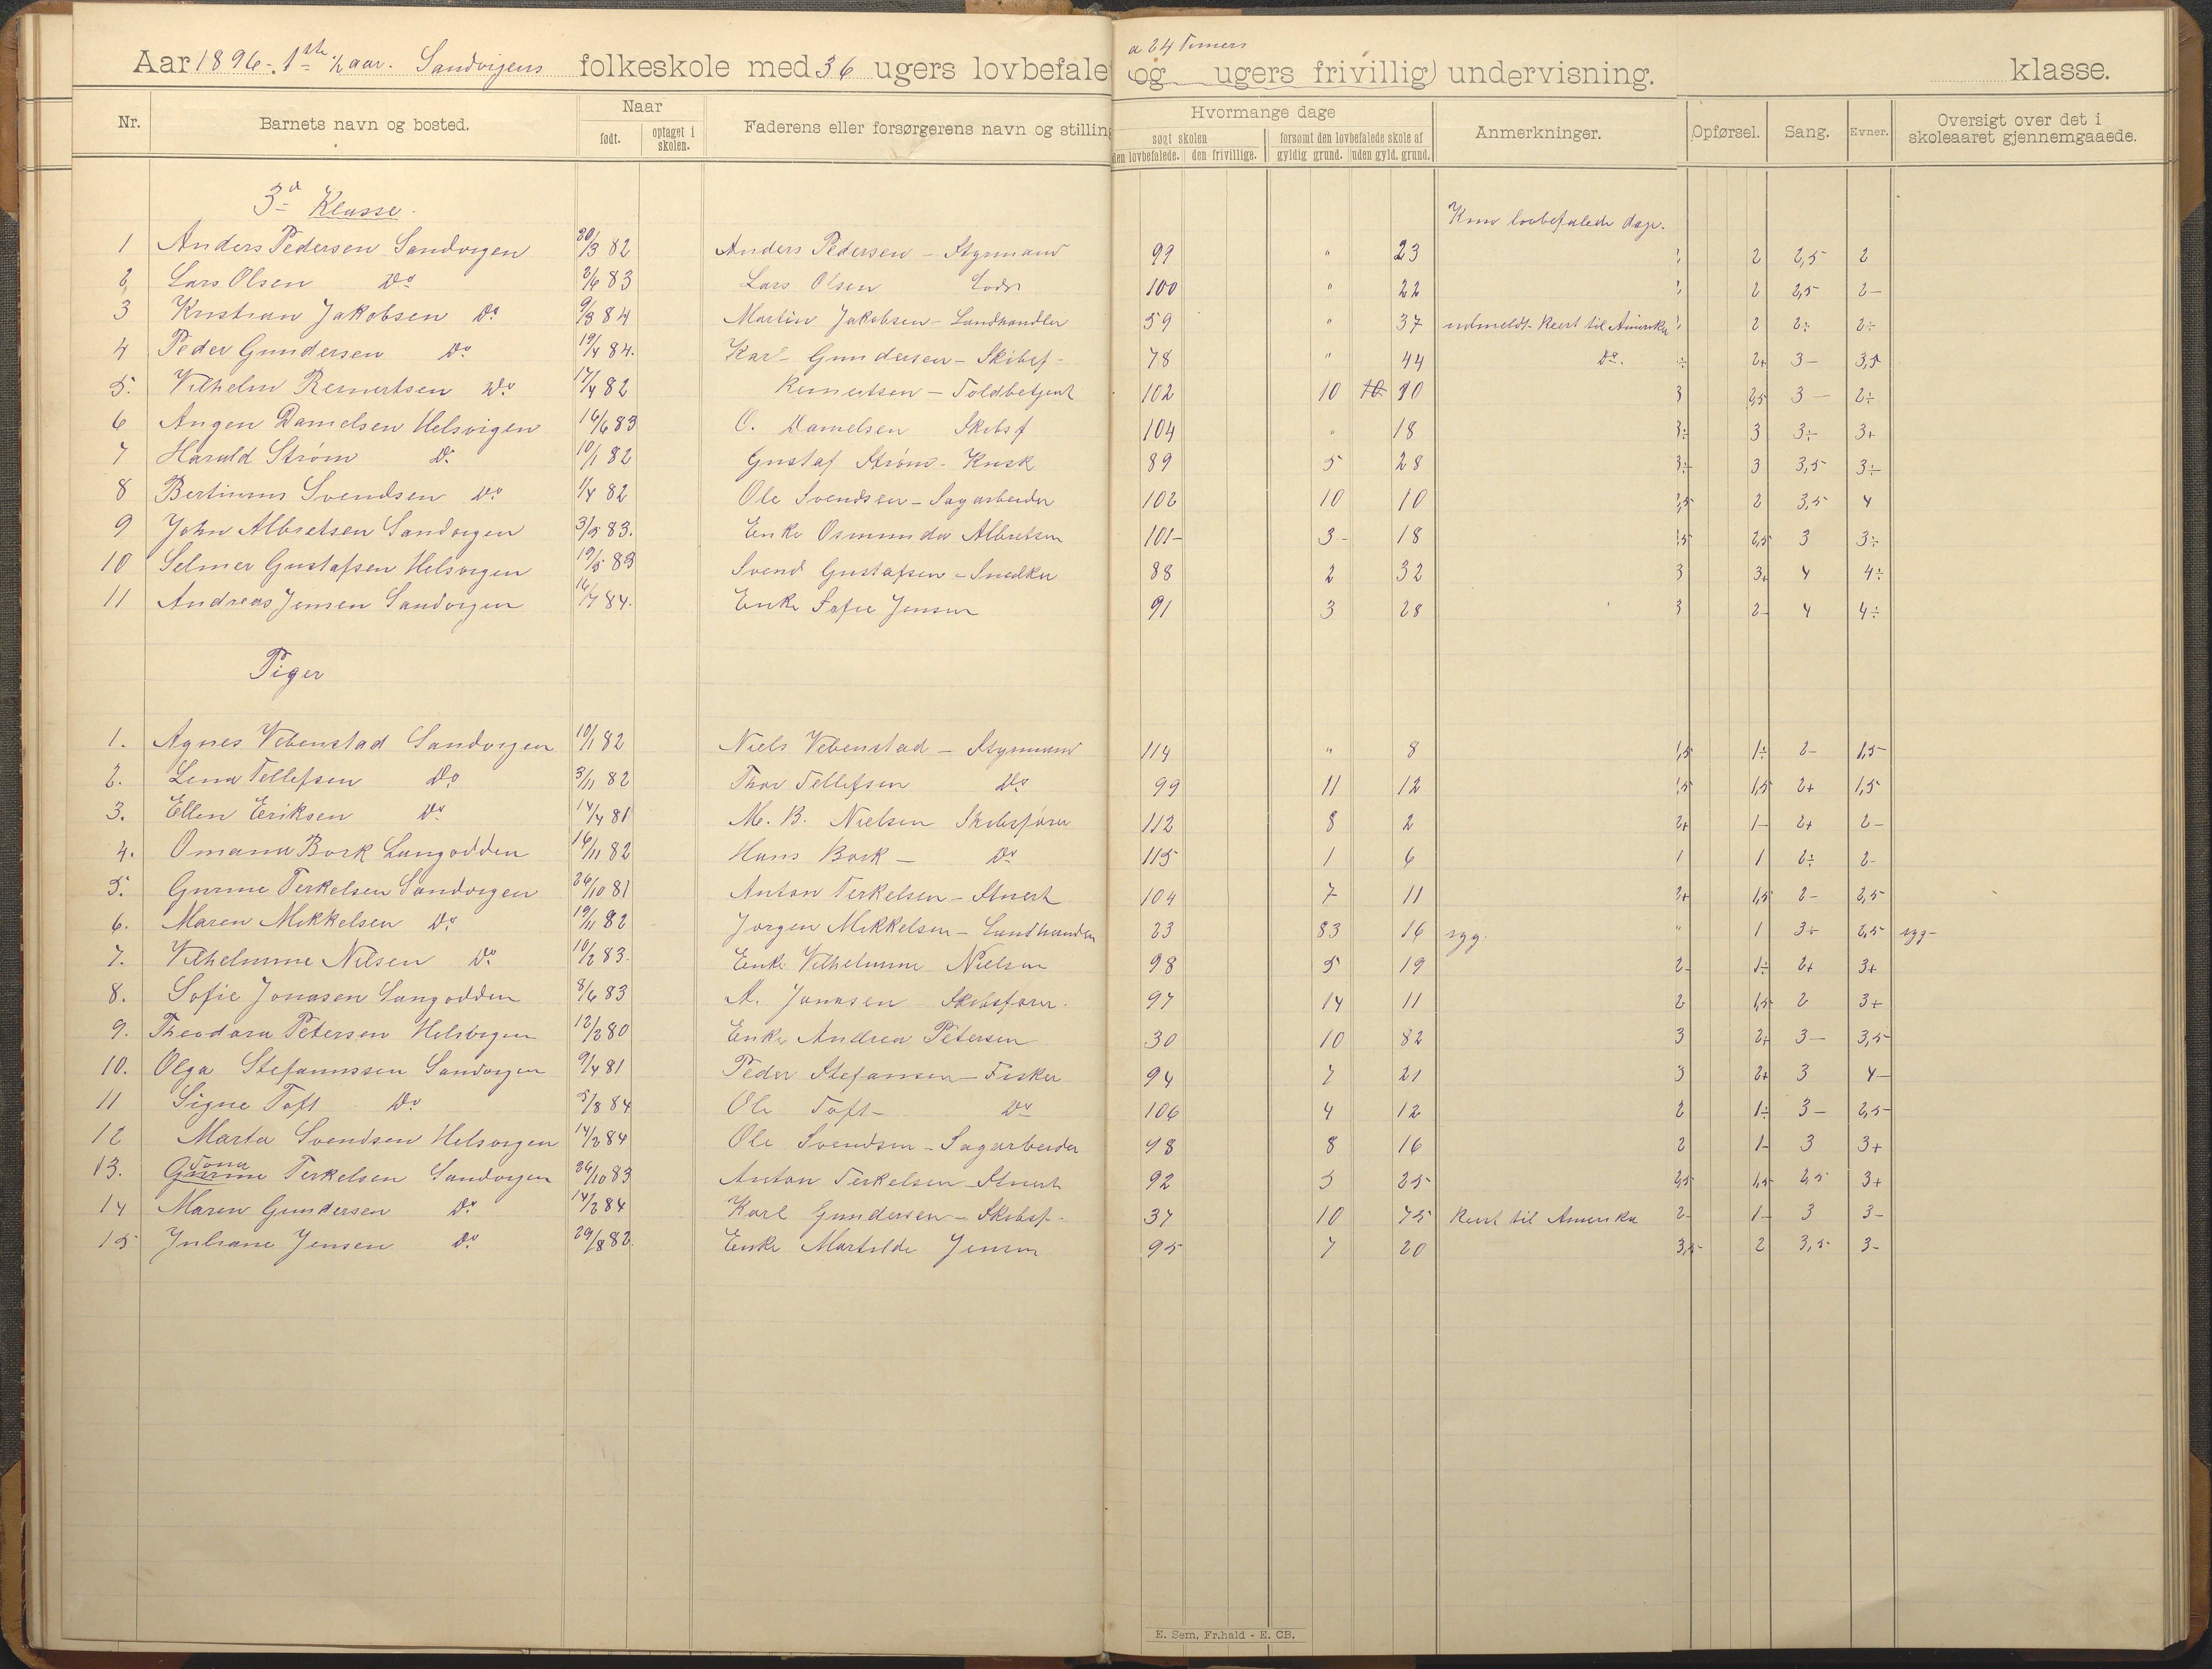 Aar 1896 - 1ste ½ aar. Sandvigens folkeskole med 36 ugers lovbefale (og ugers frivillig) undervisning. klasse.
a 24 Timers
Nr. Barnets navn og bosted. Naar født. optaget i skolen. Faderens eller forsørgerens navn og stilling Hvormange dage søgt skolen den lovbefalede. den frivillige. forsømt den lovbefalede skole af gyldig grund. uden gyld. grund. Anmerkninger. Opførsel. Sang. Evner. Oversigt over det i skoleaaret gjennemgaaede.
3d Klasse. Kun lovbefalede dage.
1 Anders Pedersen Sandvigen 20/3 82 Anders Pedersen - Styrmand 99 " 23 2 2,5 2
2, Lars Olsen Do 2/6 83 Lars Olsen Lods 100 " 22 2 2,5 2-
3 Kristian Jakobsen Do 9/3 84 Martin Jakobsen - Landhandler 59 " 37 udmeldt - Reist til Amerika 2 2÷ 2÷
4 Peder Gundersen Do 19/4 84. Karl Gundersen - Skibsf- 78 " 44 Do. 2+ 3- 3,5
5. Vilhelm Reinertsen Do 17/4 82 Reinertsen - Toldbetjent 102 10 10 10 3 2,5 3- 2÷
6 Angen Danielsen Helsvigen 16/6 83 O. Danielsen Skibsf 104 " 18 3÷ 3 3÷ 3+
7 Harald Strøm Do 10/1 82 Gustaf Strøm - Kusk 89 5 28 3÷ 3 3,5 3÷
8 Bertinius Svendsen Do 1/4 82 Ole Svendsen - Sagarbeider 102 10 10 2,5 2 3,5 4
9 John Albretsen Sandvigen 3/5 83. Enke Osmunda Albretsen 101- 3- 18 2,5 3 3÷
10 Selmer Gustafsen Helsvigen 19/5 83 Svend Gustafsen - Snedker 88 2 32 3 3+ 4 4÷
11 Andreas Jensen Sandvigen 16/7 84. Enke Sofie Jensen 91 3 28 3 2- 4 4÷
Piger
1. Agnes Vebenstad Sandvigen 10/1 82 Niels Vebenstad - Styrmand 114 " 8 1,5 1÷ 2- 1,5-
2. Lena Tellefsen Do 3/11 82 Thor Tellefsen Do 99 11 12 1,5 1,5 2+ 1,5
3. Ellen Eriksen Do 14/4 81 M. B. Nielsen Skibsfører 112 8 2 2+ 1- 2+ 2-
4. Omana Bork Langodden 16/11 82 Hans Bork - Do 115 1 6 1 1 2÷ 2-
5. Gurine Terkelsen Sandvigen 26/10 81 Anton Terkelsen - Stuert 104 7 11 2+ 1,5 2- 2,5
6. Maren Mikkelsen Do 19/11 82 Jørgen Mikkelsen - Landhandler 23 83 16 syg. " 1 3+ 2,5 syg-
7. Vilhelmine Nilsen Do 10/2 83. Enke Vilhelmine Nielsen 98 5 19 2- 1÷ 2+ 3+
8. Sofie Jonasen Langodden 8/6 83 A. Jonasen Skibsfører. 97 14 11 2 1,5 2 3+
9. Theodora Petersen Helsvigen 12/2 80 Enke Andrea Petersen 30 10 82 3 2+ 3- 3,5
10. Olga Stefanussen Sandvigen 9/4 81 Peder Stefansen - Fisker 94 7 21 3 2+ 3 4-
11 Signe Toft Do 5/8 84 Ole Toft - Do 106 4 12 2 1÷ 3- 2,5-
12 Marta Svendsen Helsvigen 14/2 84 Ole Svendsen - Sagarbeider 98 8 16 2 1- 3 3+
13. Gurine Tona Terkelsen Sandvigen 26/10 83 Anton Terkelsen - Stuert 92 5 25 2,5 1,5 2,5 3+
14 Maren Gundersen Do 14/2 84 Karl Gundersen - Skibsf- 37 10 75 Reist til Amerika 2- 1- 3 3-
15 Juliane Jensen Do 29/8 82. Enke Martilde Jensen 95 7 20 3,5- 2 3,5 3-
E. Sem, Fr.hald - E. CB.